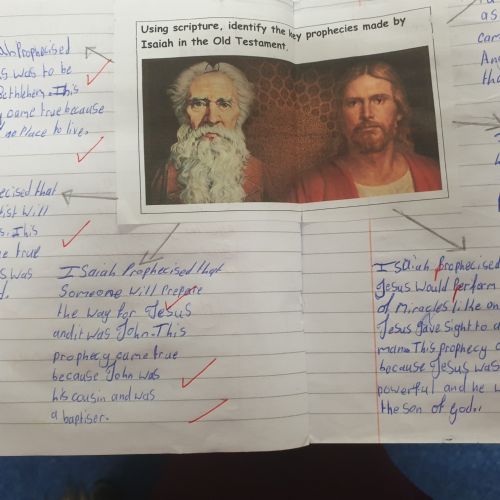 Using scripture, identify the key prophecies made by
Isaiah in the Old Testament.
iah Prophecised
s was to be
Bethlehem. This
y came true because
no Place to live.
ecised that
tist will
s. This
e true
s was
d.
Isaiah Prophecised that
Someone will Prepare
the way for Jesus
and it was John. This
prophecy came true
because John was
his cousin and was
a baptiser.
Isaiah prophecised
Jesus would perform
of Miracles like on
Jesus gave sight to a
man. This prophecy c
because Jesus was
powerful and he w
the son of God.
as
car
An
tha